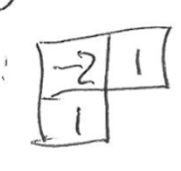 -2 1
1